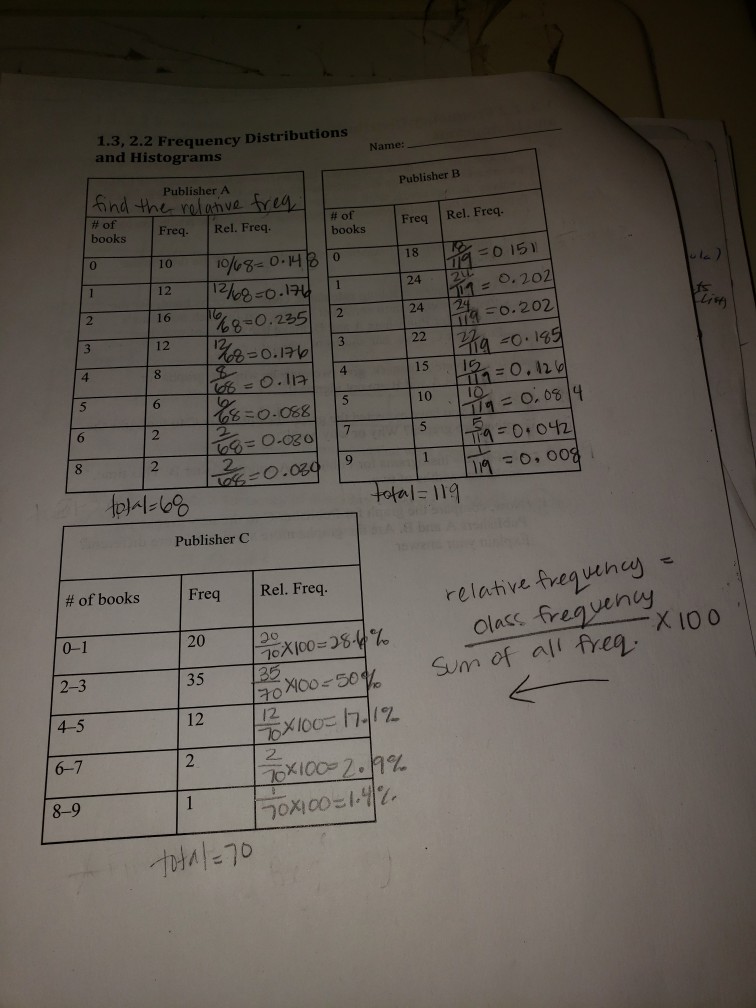 1.3, 2.2 Frequency Distributions
and Histograms
Name:
Publisher A
find the relative freq.
# of books Freq. Rel. Freq.
0 10 10/68=0.148
1 12 12/68=0.176
2 16 16/68=0.235
3 12 12/68=0.176
4 8 8/68=0.117
5 6 6/68=0.088
6 2 2/68=0.030
8 2 2/68=0.030
total=68
Publisher B
# of books Freq Rel. Freq.
0 18 18/119=0.151
1 24 24/119=0.202
2 24 24/119=0.202
3 22 22/119=0.185
4 15 15/119=0.126
5 10 10/119=0.084
7 5 5/119=0.042
9 1 1/119=0.008
total=119
Publisher C
# of books Freq Rel. Freq.
0–1 20 20/70X100=28.6%
2–3 35 35/70X100=50%
4–5 12 12/70X100=17.1%
6–7 2 2/70X100=2.9%
8–9 1 1/70X100=1.4%
total=70
relative frequency =
class frequency
X100
sum of all freq.